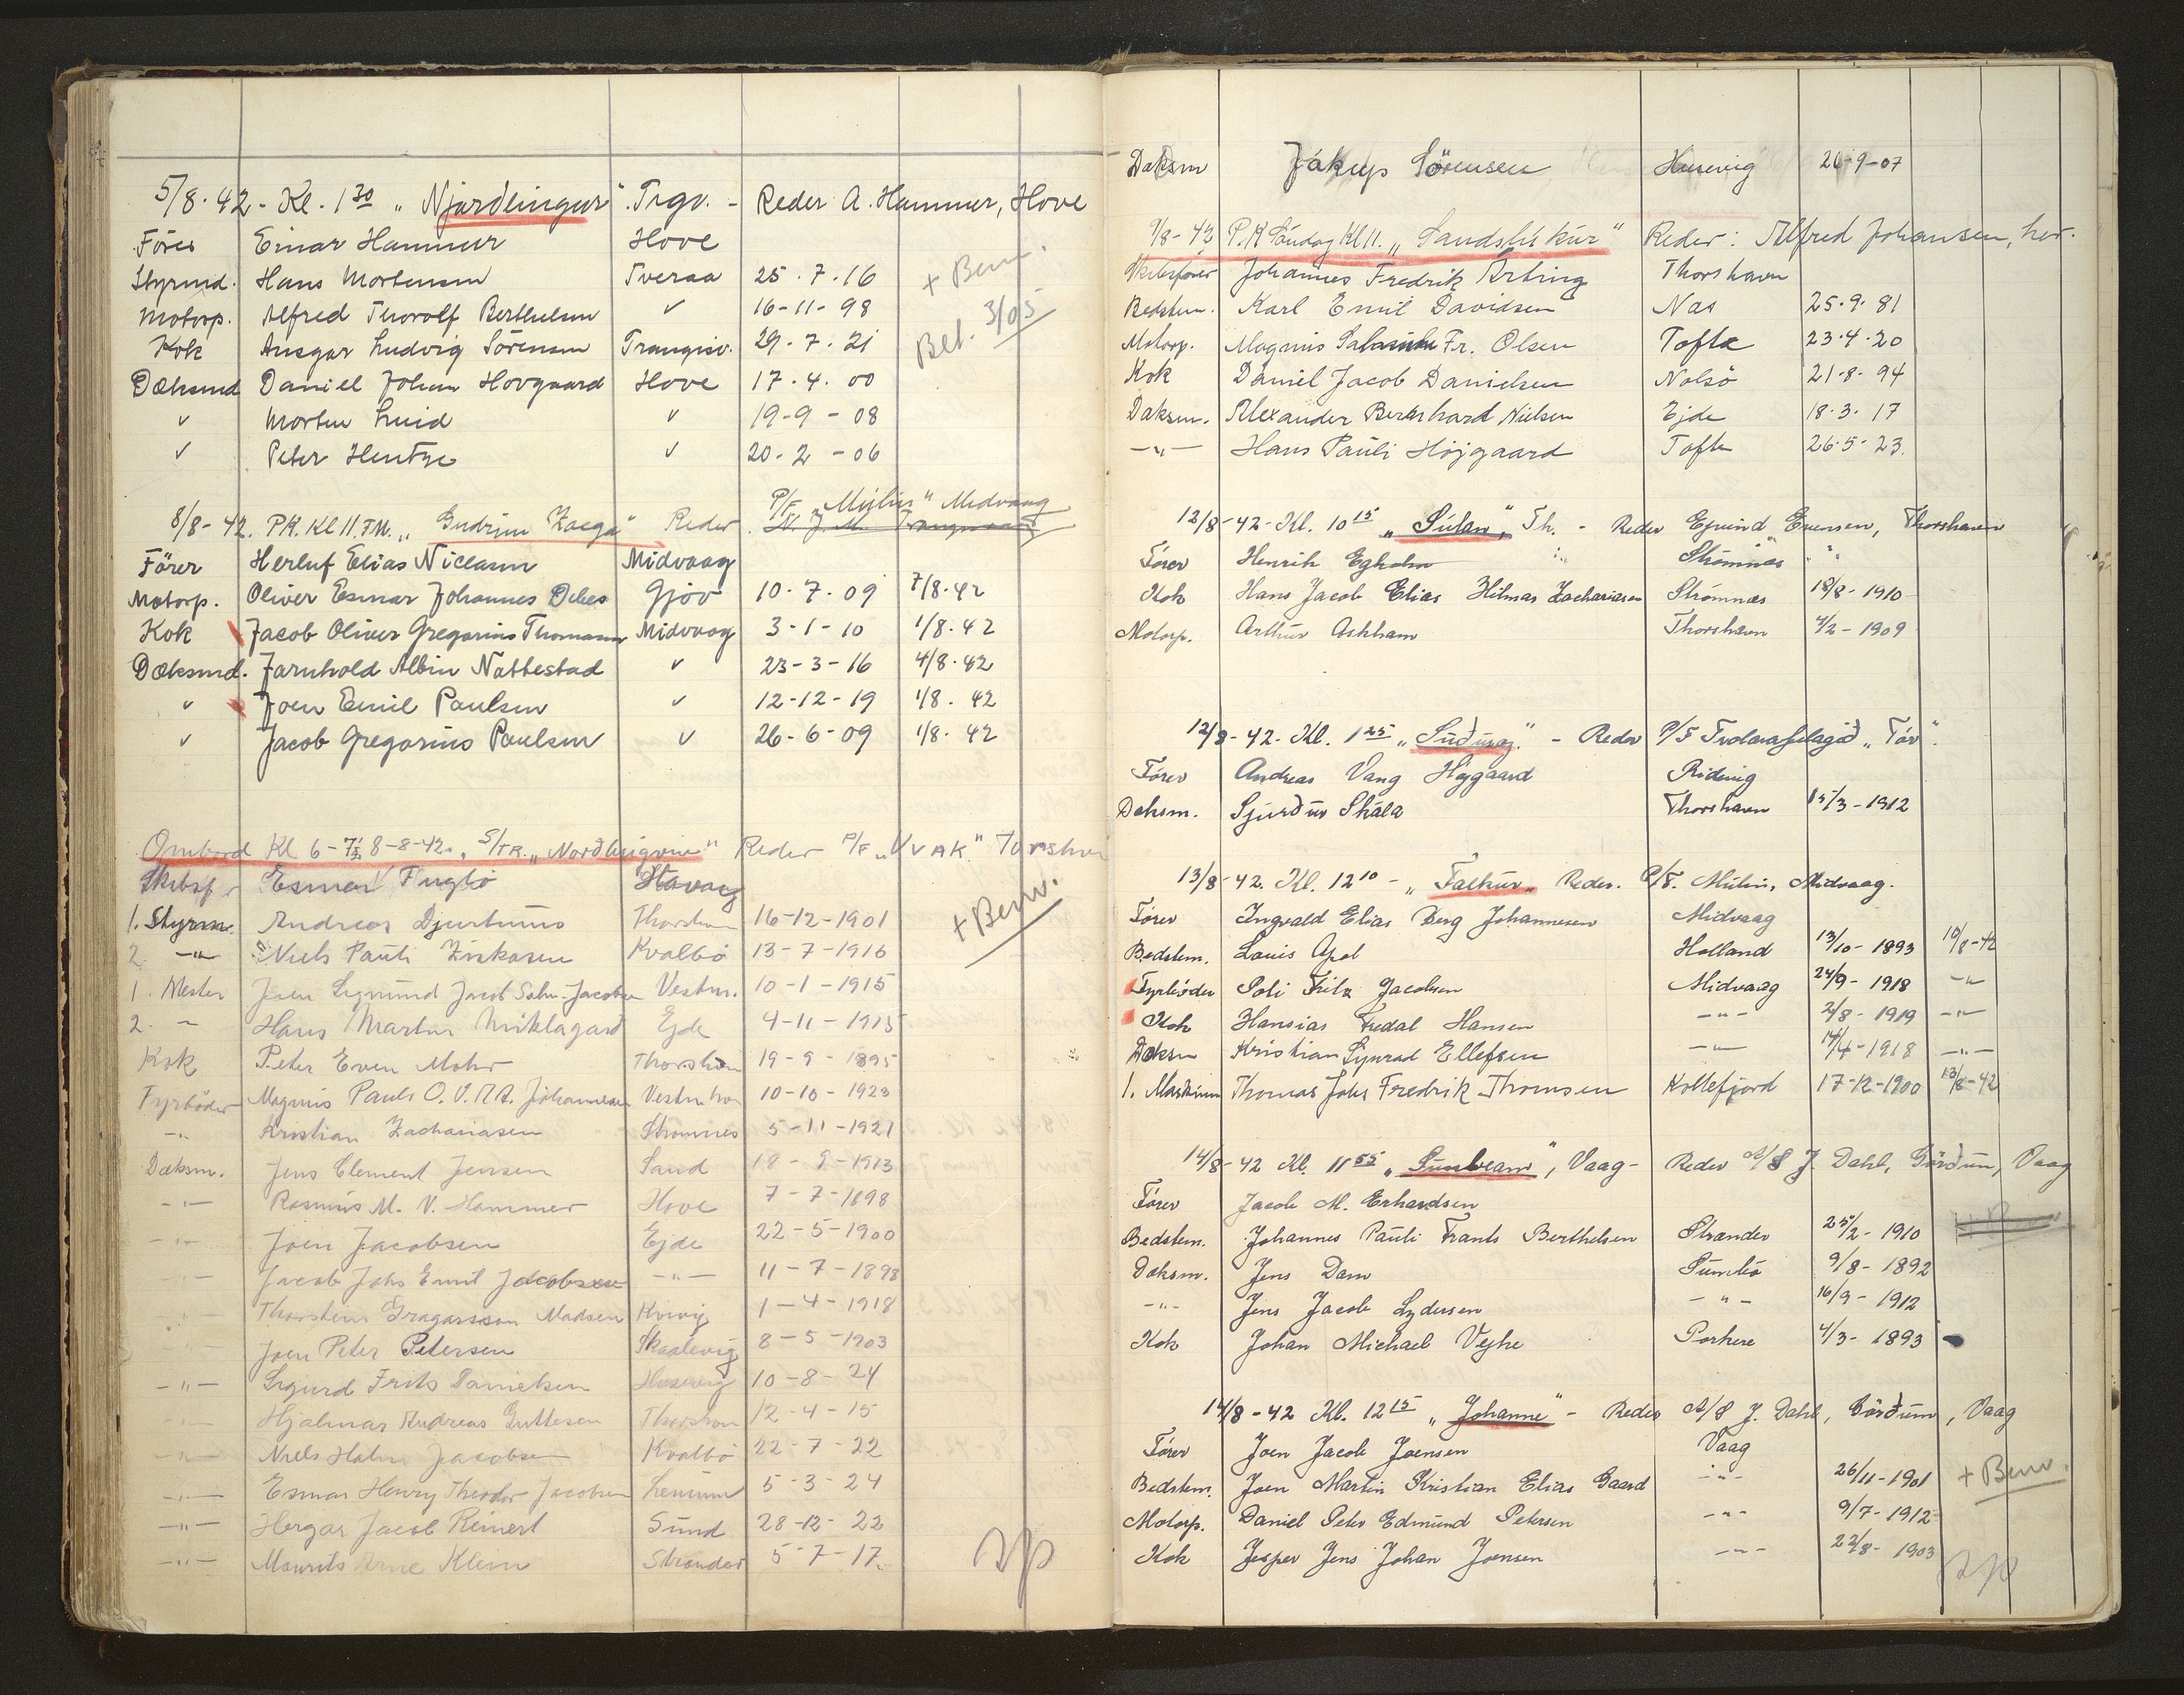 5/8-42 - Kl. 1 30 „Njardlingur" Trgv. - Reder A. Hammer, Hove
Förer Einar Hammer Hove
Styrmd. Hans Mortensen Tveraa 25.7.16 + Bem.
Motorp. Alfred Thorolf Berthelsen ✓ 16-11-98
Kok Ansgar Ludvig Sörensen Trangisv. 29.7.21 Bet. 3/05
Dæksmd Daniel Johan Hovgaard Hove 17.4.00
✓ Morten Luid ✓ 19-9-08
✓ Peter Hentze ✓ 20-2-06
8/8-42. P.K. Kl 11 FM. „Gudrun Zaega" Reder P/F „Mulin" Midvaag
Förer Herluf Elias Niclasen Midvaag
Motorp. Oliver Esmar Johannes Debes Gjov 10.7.09 7/8.42
Kok Jacob Oliver Gregorius Thomasen Midvaag 3-1-10 1/8.42
Dæksmd. Jarnhold Albin Nattestad ✓ 23-3-16 4/8.42
✓ Joen Emil Paulsen ✓ 12-12-19 1/8.42
✓ Jacob Gregorius Paulsen ✓ 26-6-09 1/8.42
Ombord Kl 6-7 8-8-42. S/TR. „Norðlingurin" Reder P/F „VVAK" Torshavn
Skibsf. Esmar Fuglö
1. Styrm. Andreas Djurhuus Thorshavn 16-12-1901 + Bem.
2. -"- Niels Pauli Ziskasen Kvalbö 13-7-1916
1. Mester Joen Sigmund Jacob Salm. Jacobsen Vestm. 10-1-1915
2. - Hans Martin Miklagard Ejde 4-11-1915
Kok Peter Even Mohr Thorshavn 19-9-1895
Fyrböder Magnus Pauli O. V. Johannesen 10-10-1923
-"- Kristian Zachariasen Strömnes 5-11-1921
Dæksm. Jens Clement Jensen Sand 18-9-1913
-"- Rasmus M. V. Hammer Hove 7-7-1898
-"- Joen Jacobsen Ejde 22-5-1900
-"- Jacob Johs Emil Jacobsen -"- 11-7-1898
-"- Thorstein Gragarsson Madsen Kvivig 1-4-1918
Joen Peter Petersen Skaalevig 8-5-1903
-"- Sigurd Frits Danielsen Husevig 10-8-24
-"- Hjalmar Andreas Guttesen Thorshavn 12-4-15
-"- Niels Holm Jacobsen Kvalbö 22-7-22
-"- Esmar Henry Theodor Jacobsen 5-3-24
-"- Hergar Jacob Reinert Sund 28-12-22
-"- Mourits Arne Klein Strander 5-7-17
Dæksm Jákup Sörensen Husevig 20-9-07
9/8-42 P.K Söndag Kl 11. „Sandshúkur" Reder: Alfred Johansen, her.
Skibsförer Johannes Fredrik Arting Thorshavn
Bedstem. Karl Emil Davidsen Nas 25.9.81
Motorp. Magnus Fr. Olsen Tofte 23.4.20
Kok Daniel Jacob Danielsen Nolsö 21-8-94
Dæksm. Alexander Bernhard Nielsen Ejde 18.3.17
-"- Hans Pauli Højgaard Tofte 26.5-23.
12/8-42- Kl. 10 15 „Súlan", Th. - Reder Ejvind Evensen, Thorshavn
Förer Henrik Egholm Strömnæs
Kok Hans Jacob Elias Hilmar Zachariasen Strömnæs 18/8-1910
Motorp. Arthur Askham Thorshavn 4/2-1909
12/8-42- Kl. 1 25 „Suðuroy." - Reder P/F Trolarafelagið „Tór".
Förer Andreas Vang Højgaard Ridevig
Dæksm. Sjurður Skála Thorshavn 15/3-1912
13/8-42. Kl. 12 10 - „Falkur" Reder. P/F. Mulin, Midvaag.
Förer Ingvald Elias Berg Johannesen Midvaag
Bedstem. Louis Apol Holland 13/10-1893 10/8-42
Fyrböder Poli Fritz Jacobsen Midvaag 24/9-1918 -"-
Kok Hansias Fredal Hansen -"- 2/8-1919 -"-
Dæksm Kristian Sigurad Ellefsen -"- 14/4-1918 -"-
1. Maskinm Thomas Johs Fredrik Thomsen Kollefjord 17-12-1900 13/8-42
14/8-42 Kl. 11 55 „Sunbeam", Vaag- Reder A/S J. Dahl, Görðum, Vaag
Förer Jacob M. Erhardsen
Bedstem. Johannes Pauli Frants Berthelsen Strander 25/2-1910
Dæksm. Jens Dam Sumbö 9/8-1892
-"- Jens Jacob Lydersen -"- 16/9-1912
Kok Johan Michael Vejhe Porkere 4/3-1893
14/8-42 Kl. 12 15 „Johanne" - Reder A/S J. Dahl, Görðum, Vaag
Förer Joen Jacob Joensen Vaag
Bedstem. Joen Martin Kristian Elias Gaard -"- 26/11-1901 + Bem.
Motorp. Daniel Peter Edmund Petersen -"- 9/7-1912
Kok Jesper Jens Johan Joensen -"- 22/8-1903